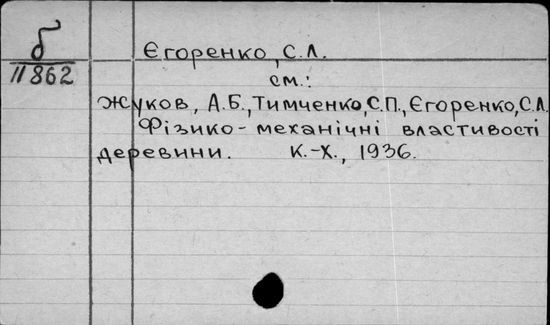 б
11862
Єгоренко, С.Л.
см.:
Жуков, А.Б., Тимченко, С.П., Єгоренко, С.Л.
Фізико-механічні властивості
деревини. К.-Х., 1936.